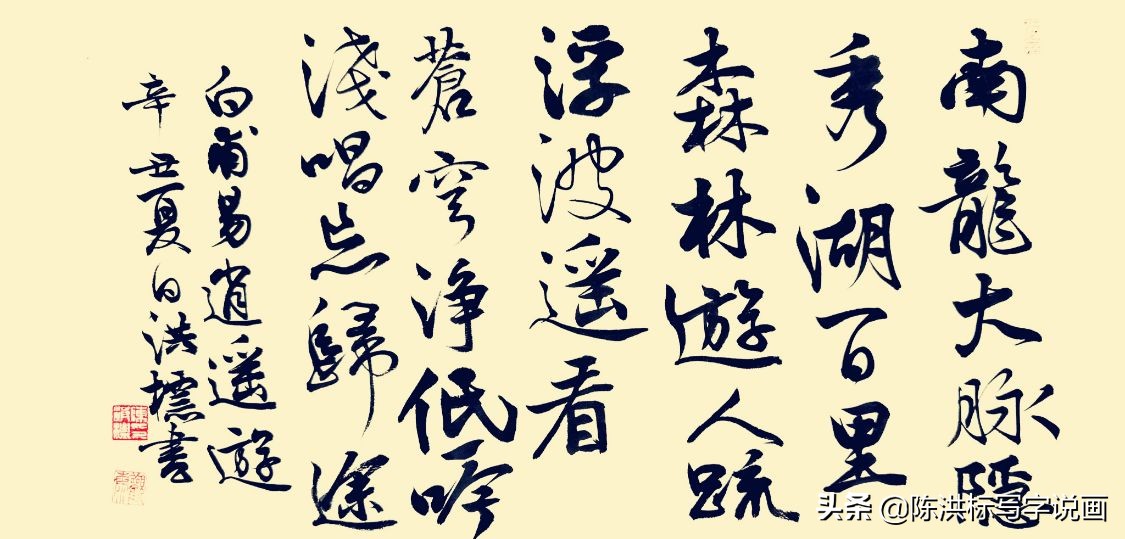 南龍大脉隱
秀湖百里
森林遊人疏
浮波遥看
蒼穹净低吟
淺唱忘歸途
白甫易逍遥遊
辛丑夏日洪標書
头条 @陈洪标写字说画